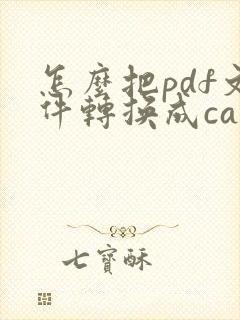 怎麼把pdf文
件轉換成ca
七寶酥